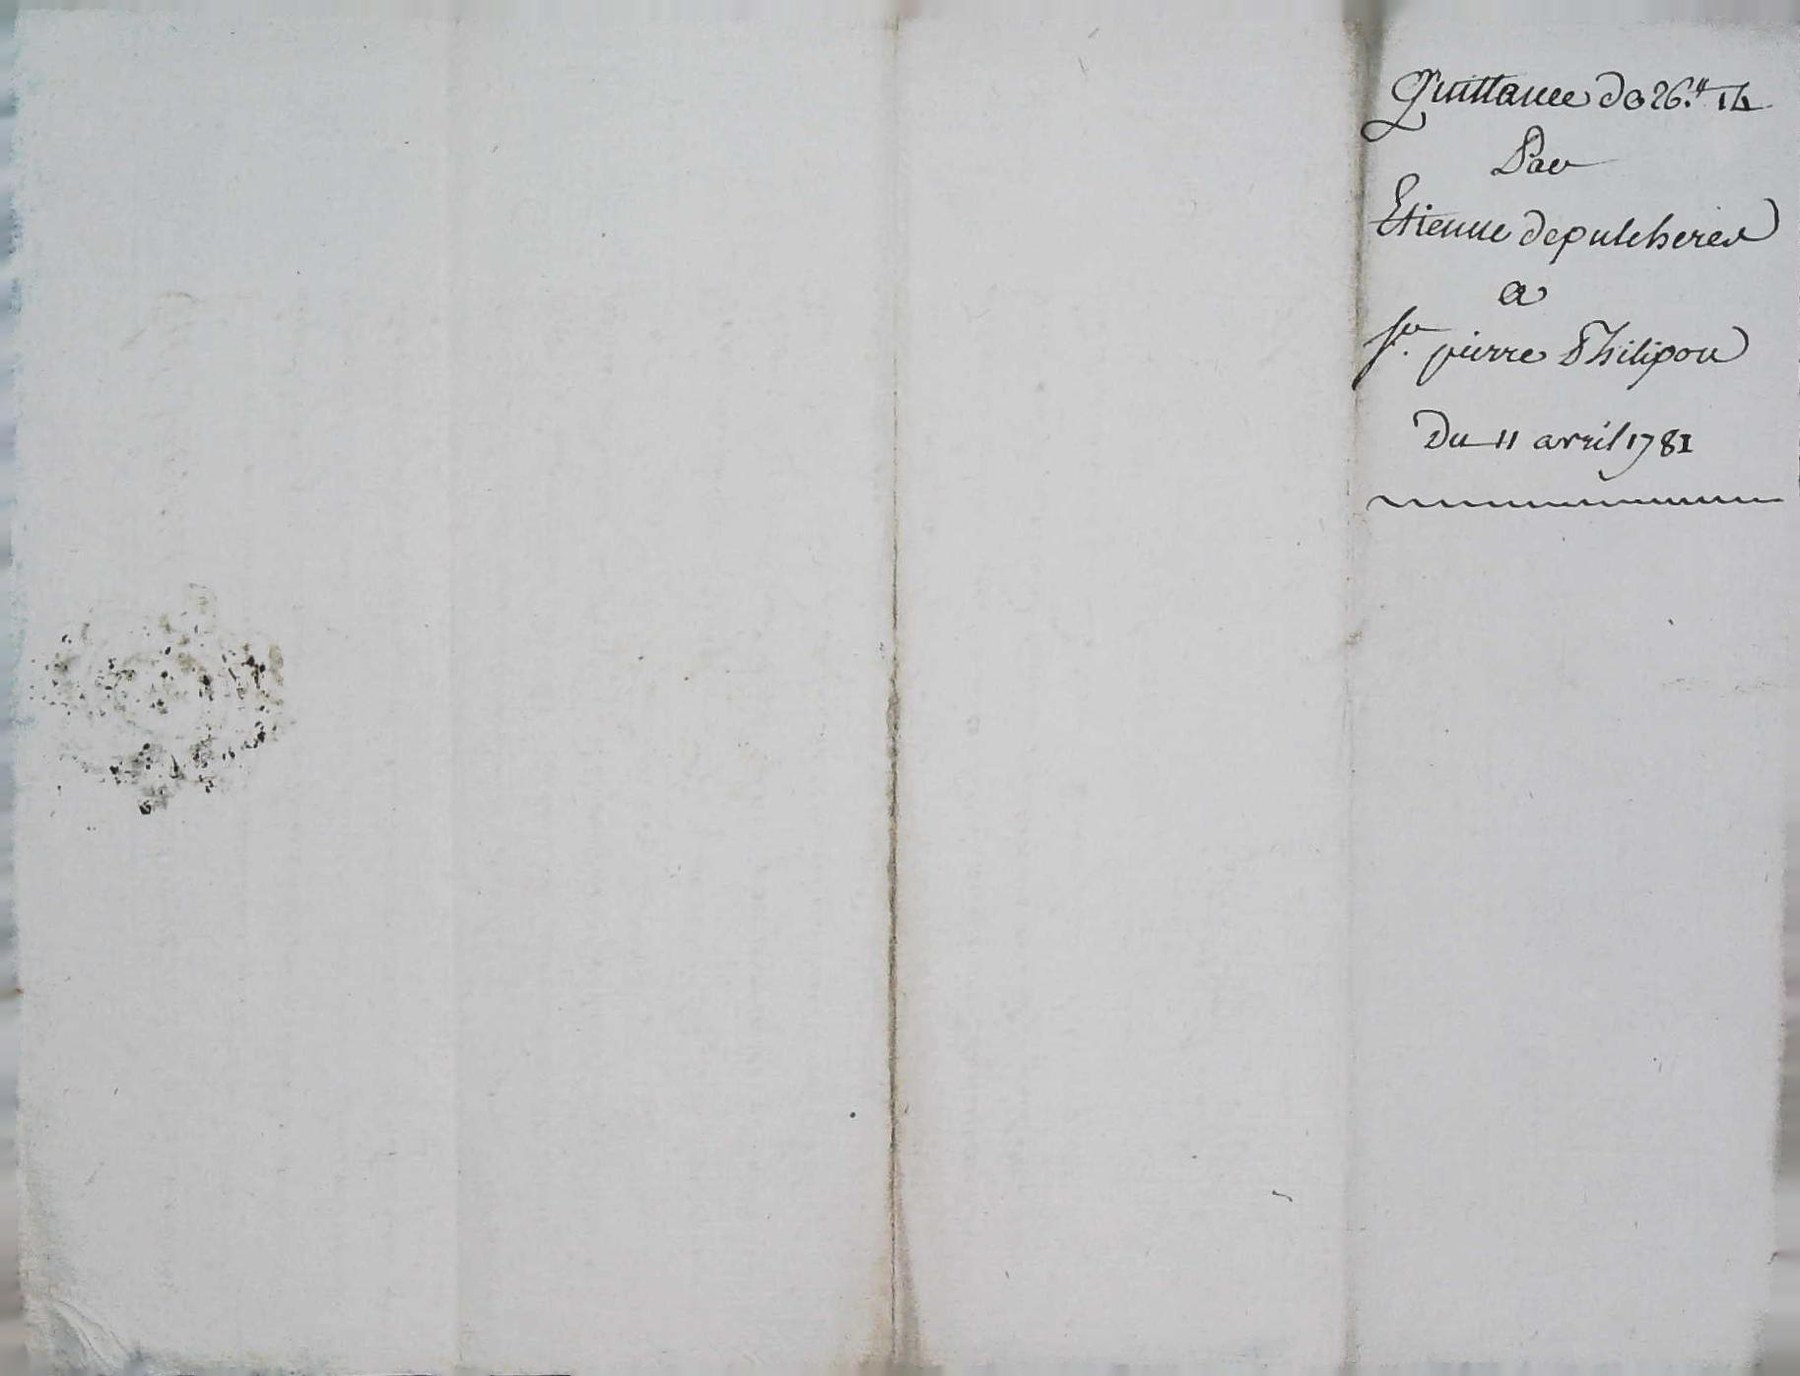 Quittance de 26.ᵗᵗ 1 L
Par
Etienne depulcheres
a
Sr. pierre Philipou
Du 11 avril 1781